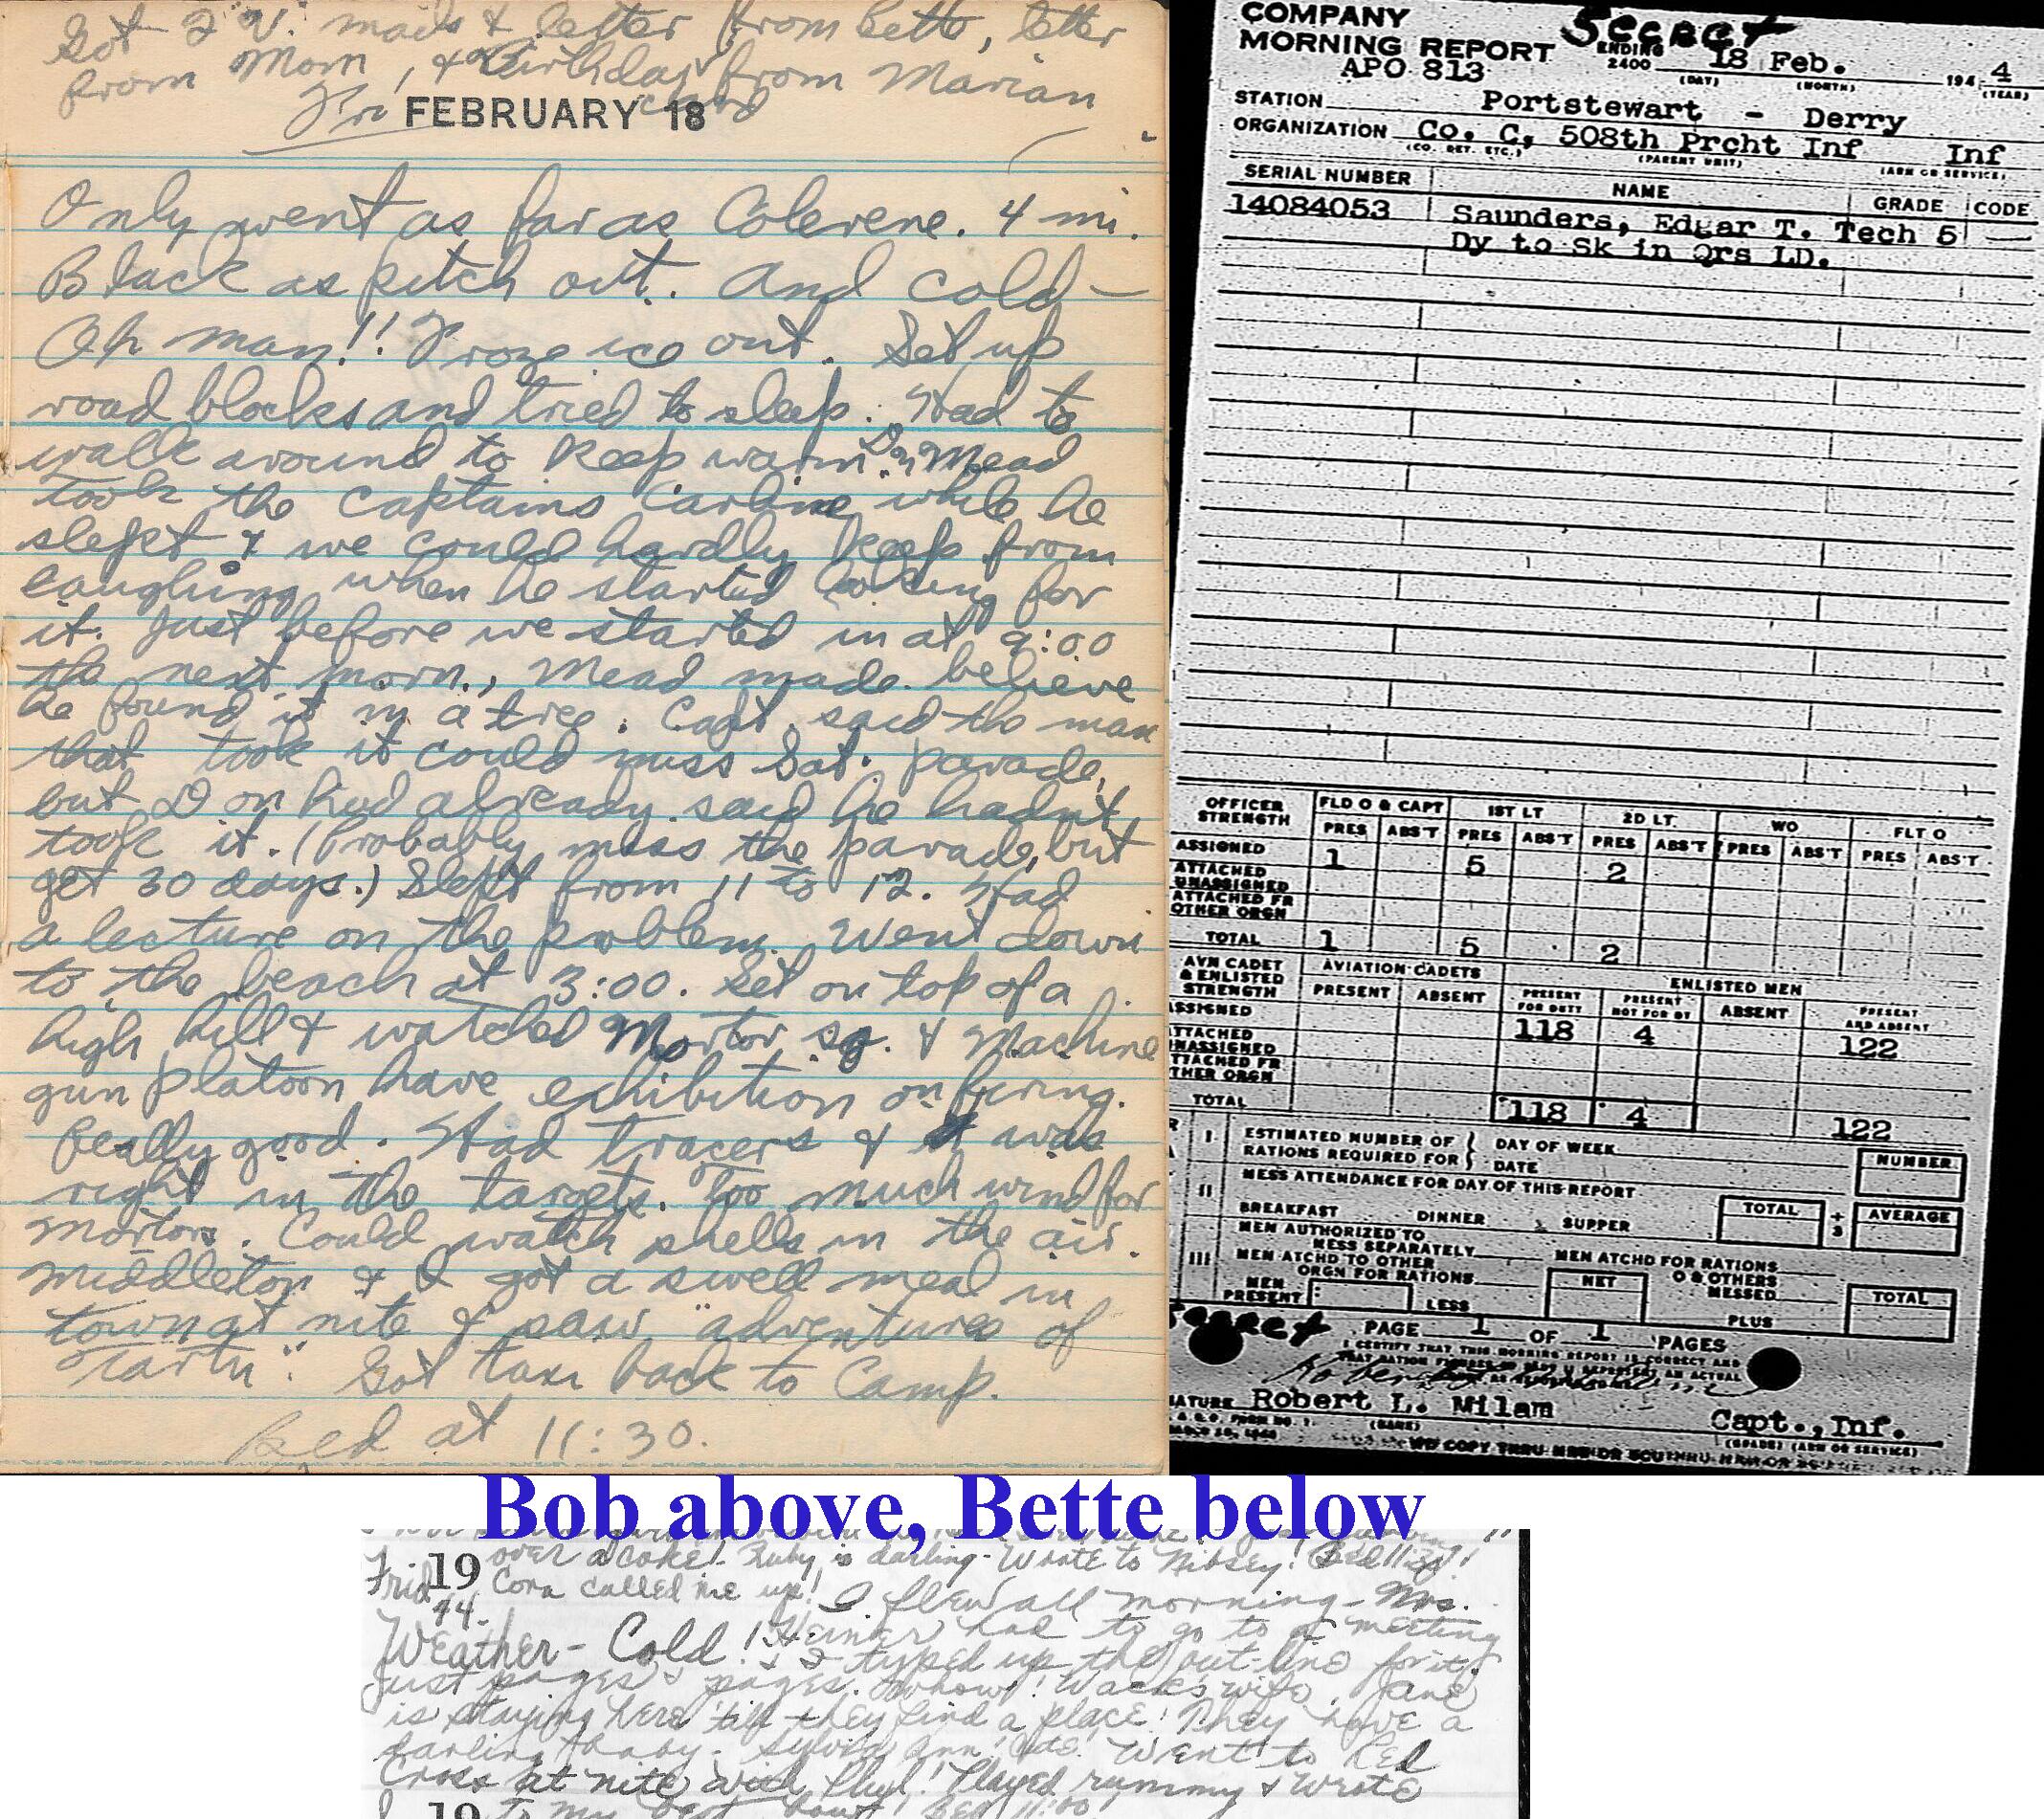 Got 2 "V" mails & letter from Bette, letter
from Mom, & Birthday card from Marian
Fri FEBRUARY 18
Only went as far as Colerene. 4 mi.
Black as pitch out. And cold—
Oh man!! Froze ice out. Set up
road blocks and tried to sleep. Had to
walk around to keep warm. Don Mead
took the captains carbine while he
slept & we could hardly keep from
laughing when he started looking for
it. Just before we started in at 9:00
the next morn., Mead made believe
he found it in a tree. Capt. said the man
that took it could miss Sat. parade,
but Don had already said he hadn't
took it. (Probably miss the parade, but
get 30 days.) Slept from 11 to 12. Had
a lecture on the problem. Went down
to the beach at 3:00. Set on top of a
high hill & watched Mortor sq. & Machine
gun platoon have exhibition on firing.
Really good. Had tracers & it was
right in the targets. Too much wind for
mortors. Could watch shells in the air.
Middleton & I got a swell meal in
town at nite & saw "adventures of
Tartu". Got taxi back to Camp.
Bed at 11:30.
COMPANY
MORNING REPORT
Secret
ENDING 2400 18 Feb. 1944
(DAY) (MONTH) (YEAR)
APO 813
STATION Portstewart - Derry
ORGANIZATION Co. C, 508th Prcht Inf Inf
(CO. DET. ETC.) (PARENT UNIT) (ARM OR SERVICE)
SERIAL NUMBER NAME GRADE CODE
14084053 Saunders, Edgar T. Tech 5 —
Dy to Sk in Qrs LD.
OFFICER STRENGTH FLD O & CAPT 1ST LT 2D LT WO FLT O
PRES ABS'T PRES ABS'T PRES ABS'T PRES ABS'T PRES ABS'T
ASSIGNED 1 5 2
ATTACHED UNASSIGNED
ATTACHED FR OTHER ORGN
TOTAL 1 5 2
AVN CADET & ENLISTED STRENGTH AVIATION CADETS ENLISTED MEN
PRESENT ABSENT PRESENT FOR DUTY PRESENT NOT FOR DY ABSENT PRESENT AND ABSENT
ASSIGNED 118 4 122
ATTACHED UNASSIGNED
ATTACHED FR OTHER ORGN
TOTAL 118 4 122
I ESTIMATED NUMBER OF RATIONS REQUIRED FOR DAY OF WEEK
DATE NUMBER
II MESS ATTENDANCE FOR DAY OF THIS REPORT
BREAKFAST DINNER SUPPER TOTAL ÷ 3 AVERAGE
III MEN AUTHORIZED TO MESS SEPARATELY MEN ATCHD FOR RATIONS
MEN ATCHD TO OTHER ORGN FOR RATIONS O & OTHERS MESSED
MEN PRESENT LESS NET PLUS TOTAL
Secret PAGE 1 OF 1 PAGES
I CERTIFY THAT THIS MORNING REPORT IS CORRECT AND
SIGNATURE Robert L. Milam Capt., Inf.
(NAME) (GRADE) (ARM OR SERVICE)
Bob above, Bette below
over a coke! Ruby is darling - Wrote to Nibsey! Bed 11:30!
Frid. 19 Cora called me up! I flew all morning - Mrs.
44.
Weather - Cold! Heiner had to go to a meeting
& I typed up the out-line for it,
Just pages & pages. Whow! Wack's wife, Jane
is staying here till they find a place! They have a
darling baby - Sylvia Ann! Cute! Went to Red
Cross at nite with Phyl! Played rummy & wrote
19 to my best beau! Bed 11:00!